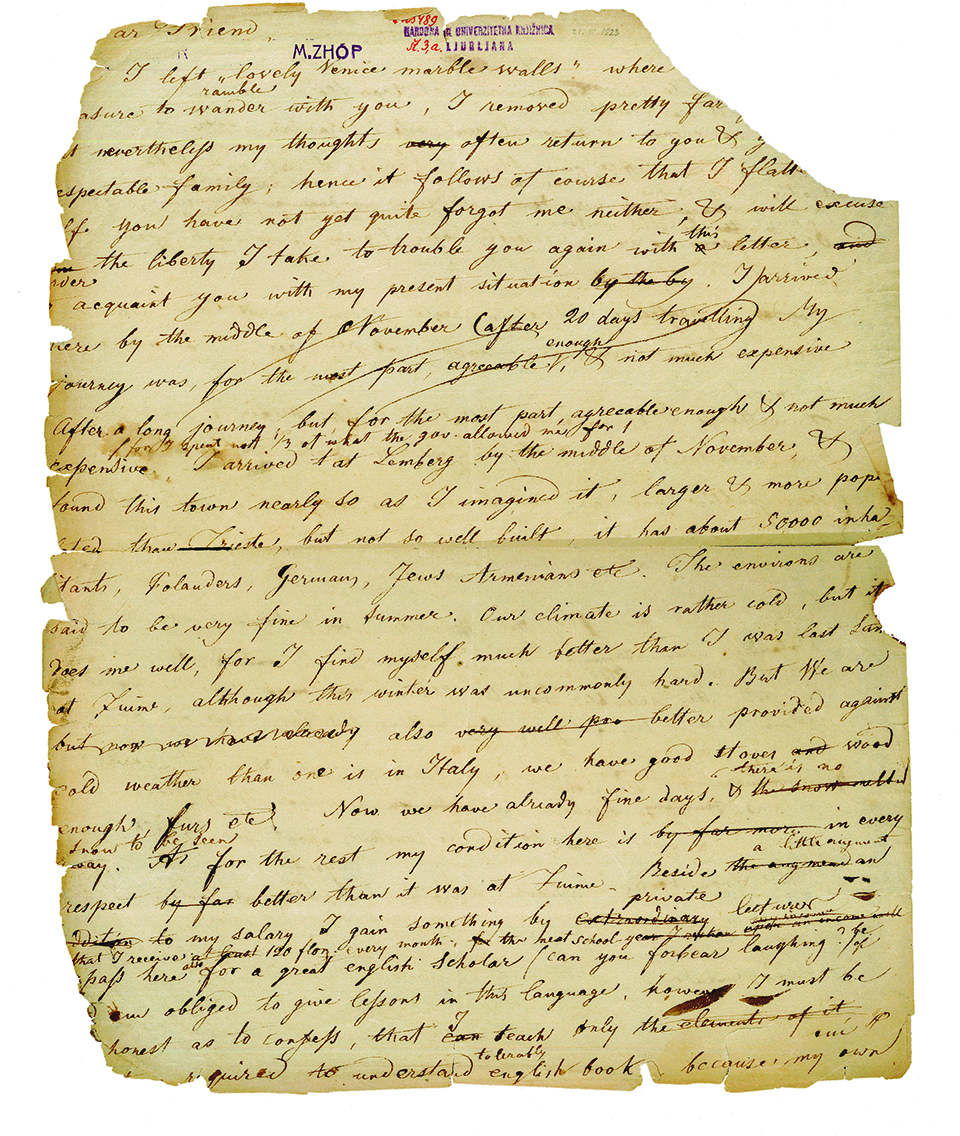 ar Friend
Ms 489
NARODNA IN UNIVERZITETNA KNJIŽNICA
A.3,a. LJUBLJANA
M.ZHÓP
I left „lovely Venice marble walls" where
ramble
asure to wander with you, I removed pretty far
nevertheless my thoughts very often return to you &
espectable family; hence it follows of course that I flatt
lf you have not yet quite forgot me neither, & will excuse
this
the liberty I take to trouble you again with a letter, and
rder
acquaint you with my present situation by the by. I arrived
here by the middle of November (after 20 days travelling) My
enough
journey was, for the most part, agreeable, & not much expensive
After a long journey, but, for the most part, agreeable enough & not much
(for I spent not 1/3 of what the gov. allowed me for)
expensive. I arrived at Lemberg by the middle of November, &
found this town nearly so as I imagined it, larger & more popu
lated than Trieste, but not so well built, it has about 50000 inha
itants, Polanders, Germans, Jews Armenians etc. The environs are
said to be very fine in summer. Our climate is rather cold, but it
does me well, for I find myself much better than I was last Sum
at Fiume, although this winter was uncommonly hard. But We are
but now we have already also very well pro better provided against
cold weather than one is in Italy, we have good stoves and wood
there is no
enough, furs etc. Now we have already fine days, & the snow melted
snow to be seen
way. As for the rest my condition here is by far more in every
a little augment
respect by far better than it was at Fiume. Beside the augmend an
private
dition to my salary I gain something by extraordinary lectures
that I receive at least 120 flor. every month. the next school year I
also
pass here for a great english scholar (can you forbear laughing?)
am obliged to give lessons in this language, however I must be
I
honest as to confess, that can teach only the elements of it
tolerably
required to understand english book because my own